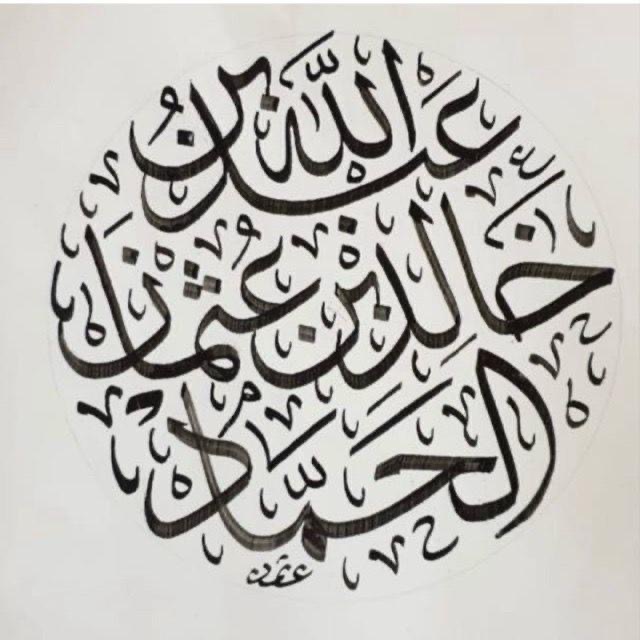 عبد الله بن
خالد بن عثمان
الحماد